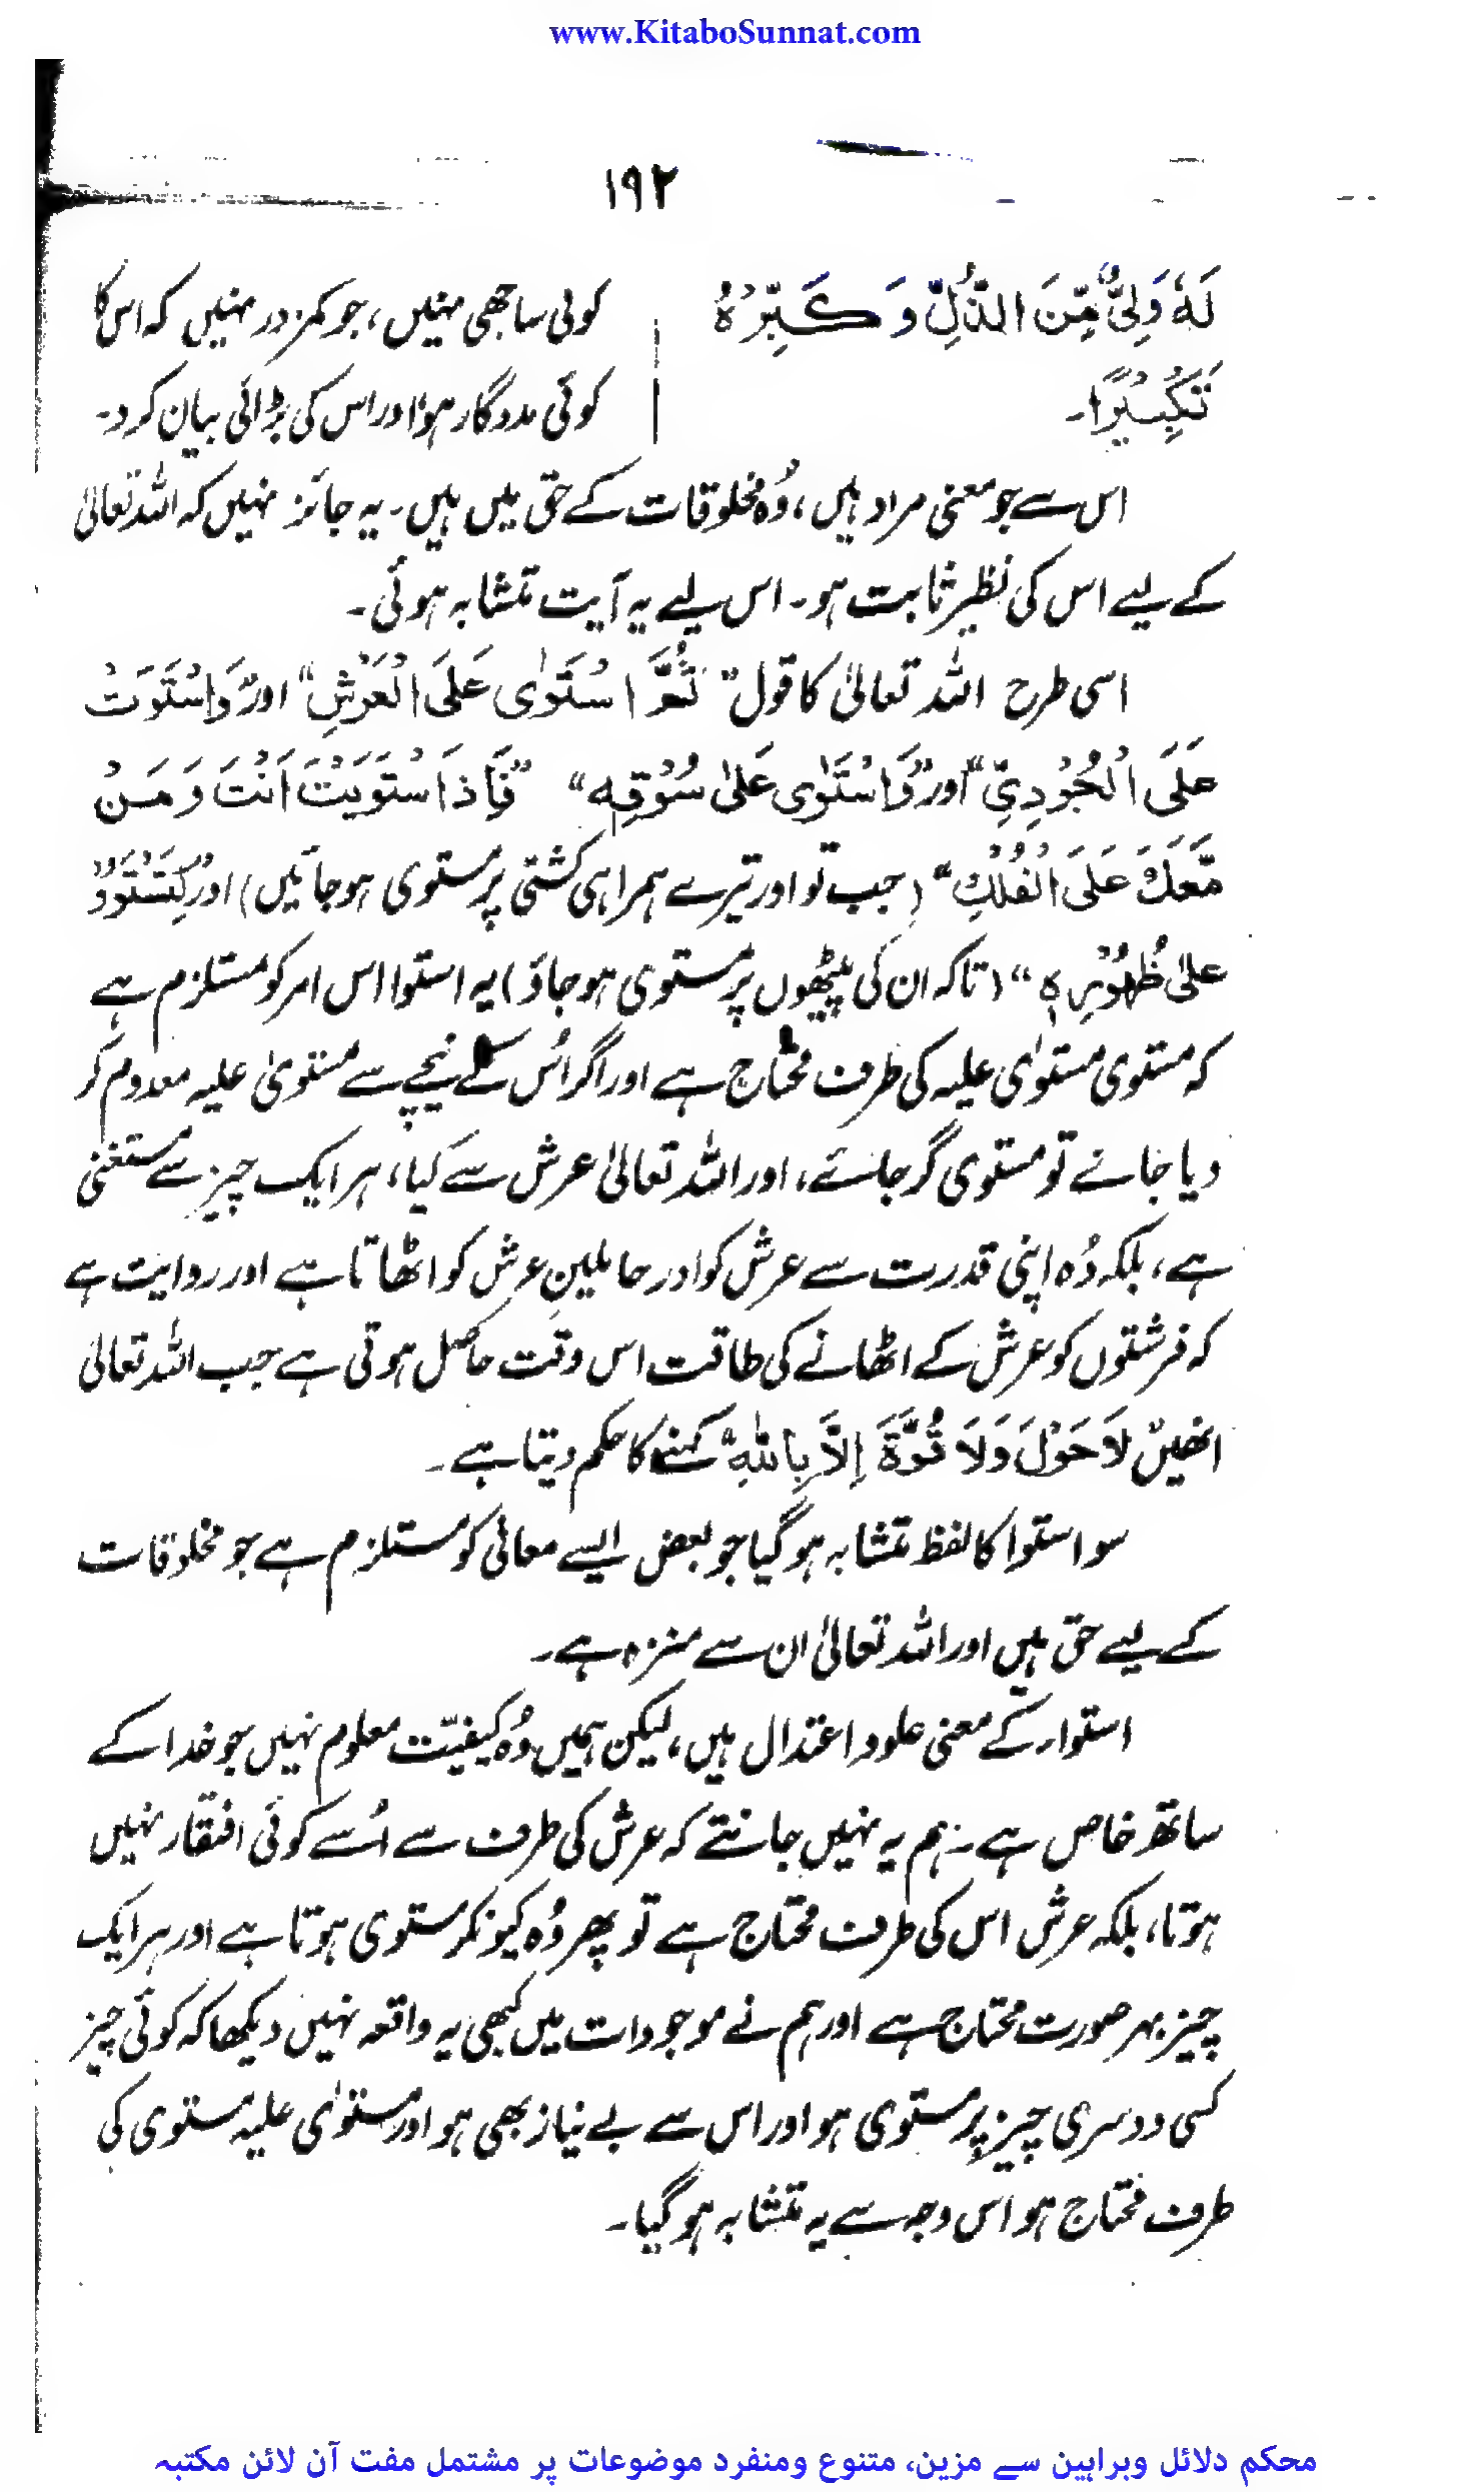 www.KitaboSunnat.com
۱۹۲
لَهٗ وَلِیٌّ مِّنَ الذُّلِّ وَ كَبِّرْهُ
تَكْبِیْرًا۔
کوئی ساجھی نہیں، جو کمزور نہیں کہ اس کا
کوئی مددگار ہو اور اس کی بڑائی بیان کرد۔
اس سے جو معنی مراد ہیں، وُہ مخلوقات کے حق میں ہیں۔ یہ جائز نہیں کہ اللہ تعالیٰ
کے لیے اس کی نظیر ثابت ہو۔ اس لیے یہ آیت متشابہ ہوئی۔
اسی طرح اللہ تعالیٰ کا قول "ثُمَّ اسْتَوٰى عَلَى الْعَرْشِ" اور "وَاسْتَوَتْ
عَلَى الْجُوْدِيِّ" اور "وَاسْتَوٰى عَلىٰ سُوْقِهٖ" "فَاِذَا سْتَوَيْتَ اَنْتَ وَ مَنْ
مَّعَكَ عَلَى الْفُلْكِ" (جب تو اور تیرے ہمراہی کشتی پر مستوی ہو جائیں) اور "لِتَسْتَوٗا
عَلىٰ ظُهُوْرِهٖ" (تاکہ ان کی پیٹھوں پر مستوی ہو جاؤ) یہ استوا اس امر کو مستلزم ہے
کہ مستوی مستوٰی علیہ کی طرف محتاج ہے اور اگر اُس کے نیچے سے مستویٰ علیہ معدوم کر
دیا جائے تو مستوی گر جائے، اور اللہ تعالیٰ عرش سے کیا، ہر ایک چیز سے مستغنی
ہے، بلکہ وُہ اپنی قدرت سے عرش کو اور حاملینِ عرش کو اٹھاتا ہے اور روایت ہے
کہ فرشتوں کو عرش کے اٹھانے کی طاقت اس وقت حاصل ہوتی ہے جب اللہ تعالیٰ
انھیں "لَا حَوْلَ وَلَا قُوَّةَ إِلَّا بِاللّٰهِ" کہنے کا حکم دیتا ہے۔
سو استوا کا لفظ متشابہ ہو گیا جو بعض ایسے معانی کو مستلزم ہے جو مخلوقات
کے لیے حق ہیں اور اللہ تعالیٰ ان سے منزہ ہے۔
استواء کے معنی علو و اعتدال ہیں، لیکن ہمیں وُہ کیفیّت معلوم نہیں جو خدا کے
ساتھ خاص ہے۔ ہم یہ نہیں جانتے کہ عرش کی طرف سے اُسے کوئی افتقار نہیں
ہوتا، بلکہ عرش اس کی طرف محتاج ہے تو پھر وُہ کیونکر مستوی ہوتا ہے اور ہر ایک
چیز بہر صورت محتاج ہے اور ہم نے موجودات میں کبھی یہ واقعہ نہیں دیکھا کہ کوئی چیز
کسی دوسری چیز پر مستوی ہو اور اس سے بے نیاز بھی ہو اور مستوٰی علیہ مستوی کی
طرف محتاج ہو اس وجہ سے یہ متشابہ ہو گیا۔
محکم دلائل وبراہین سے مزین، متنوع ومنفرد موضوعات پر مشتمل مفت آن لائن مکتبہ